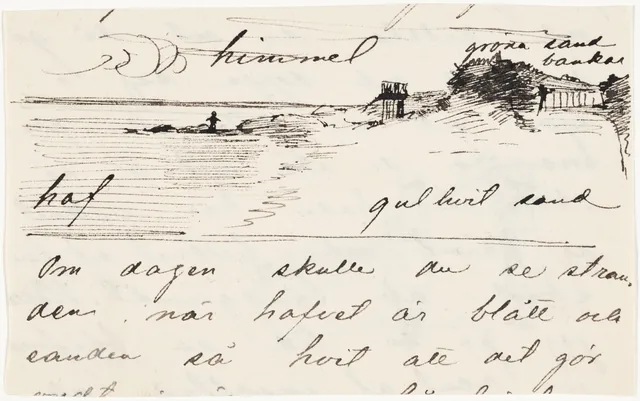 himmel
gröna sand
bankar
haf
gul hvit sand
Om dagen skulle du se stran-
den när hafvet är blått och
sanden så hvit att det gör